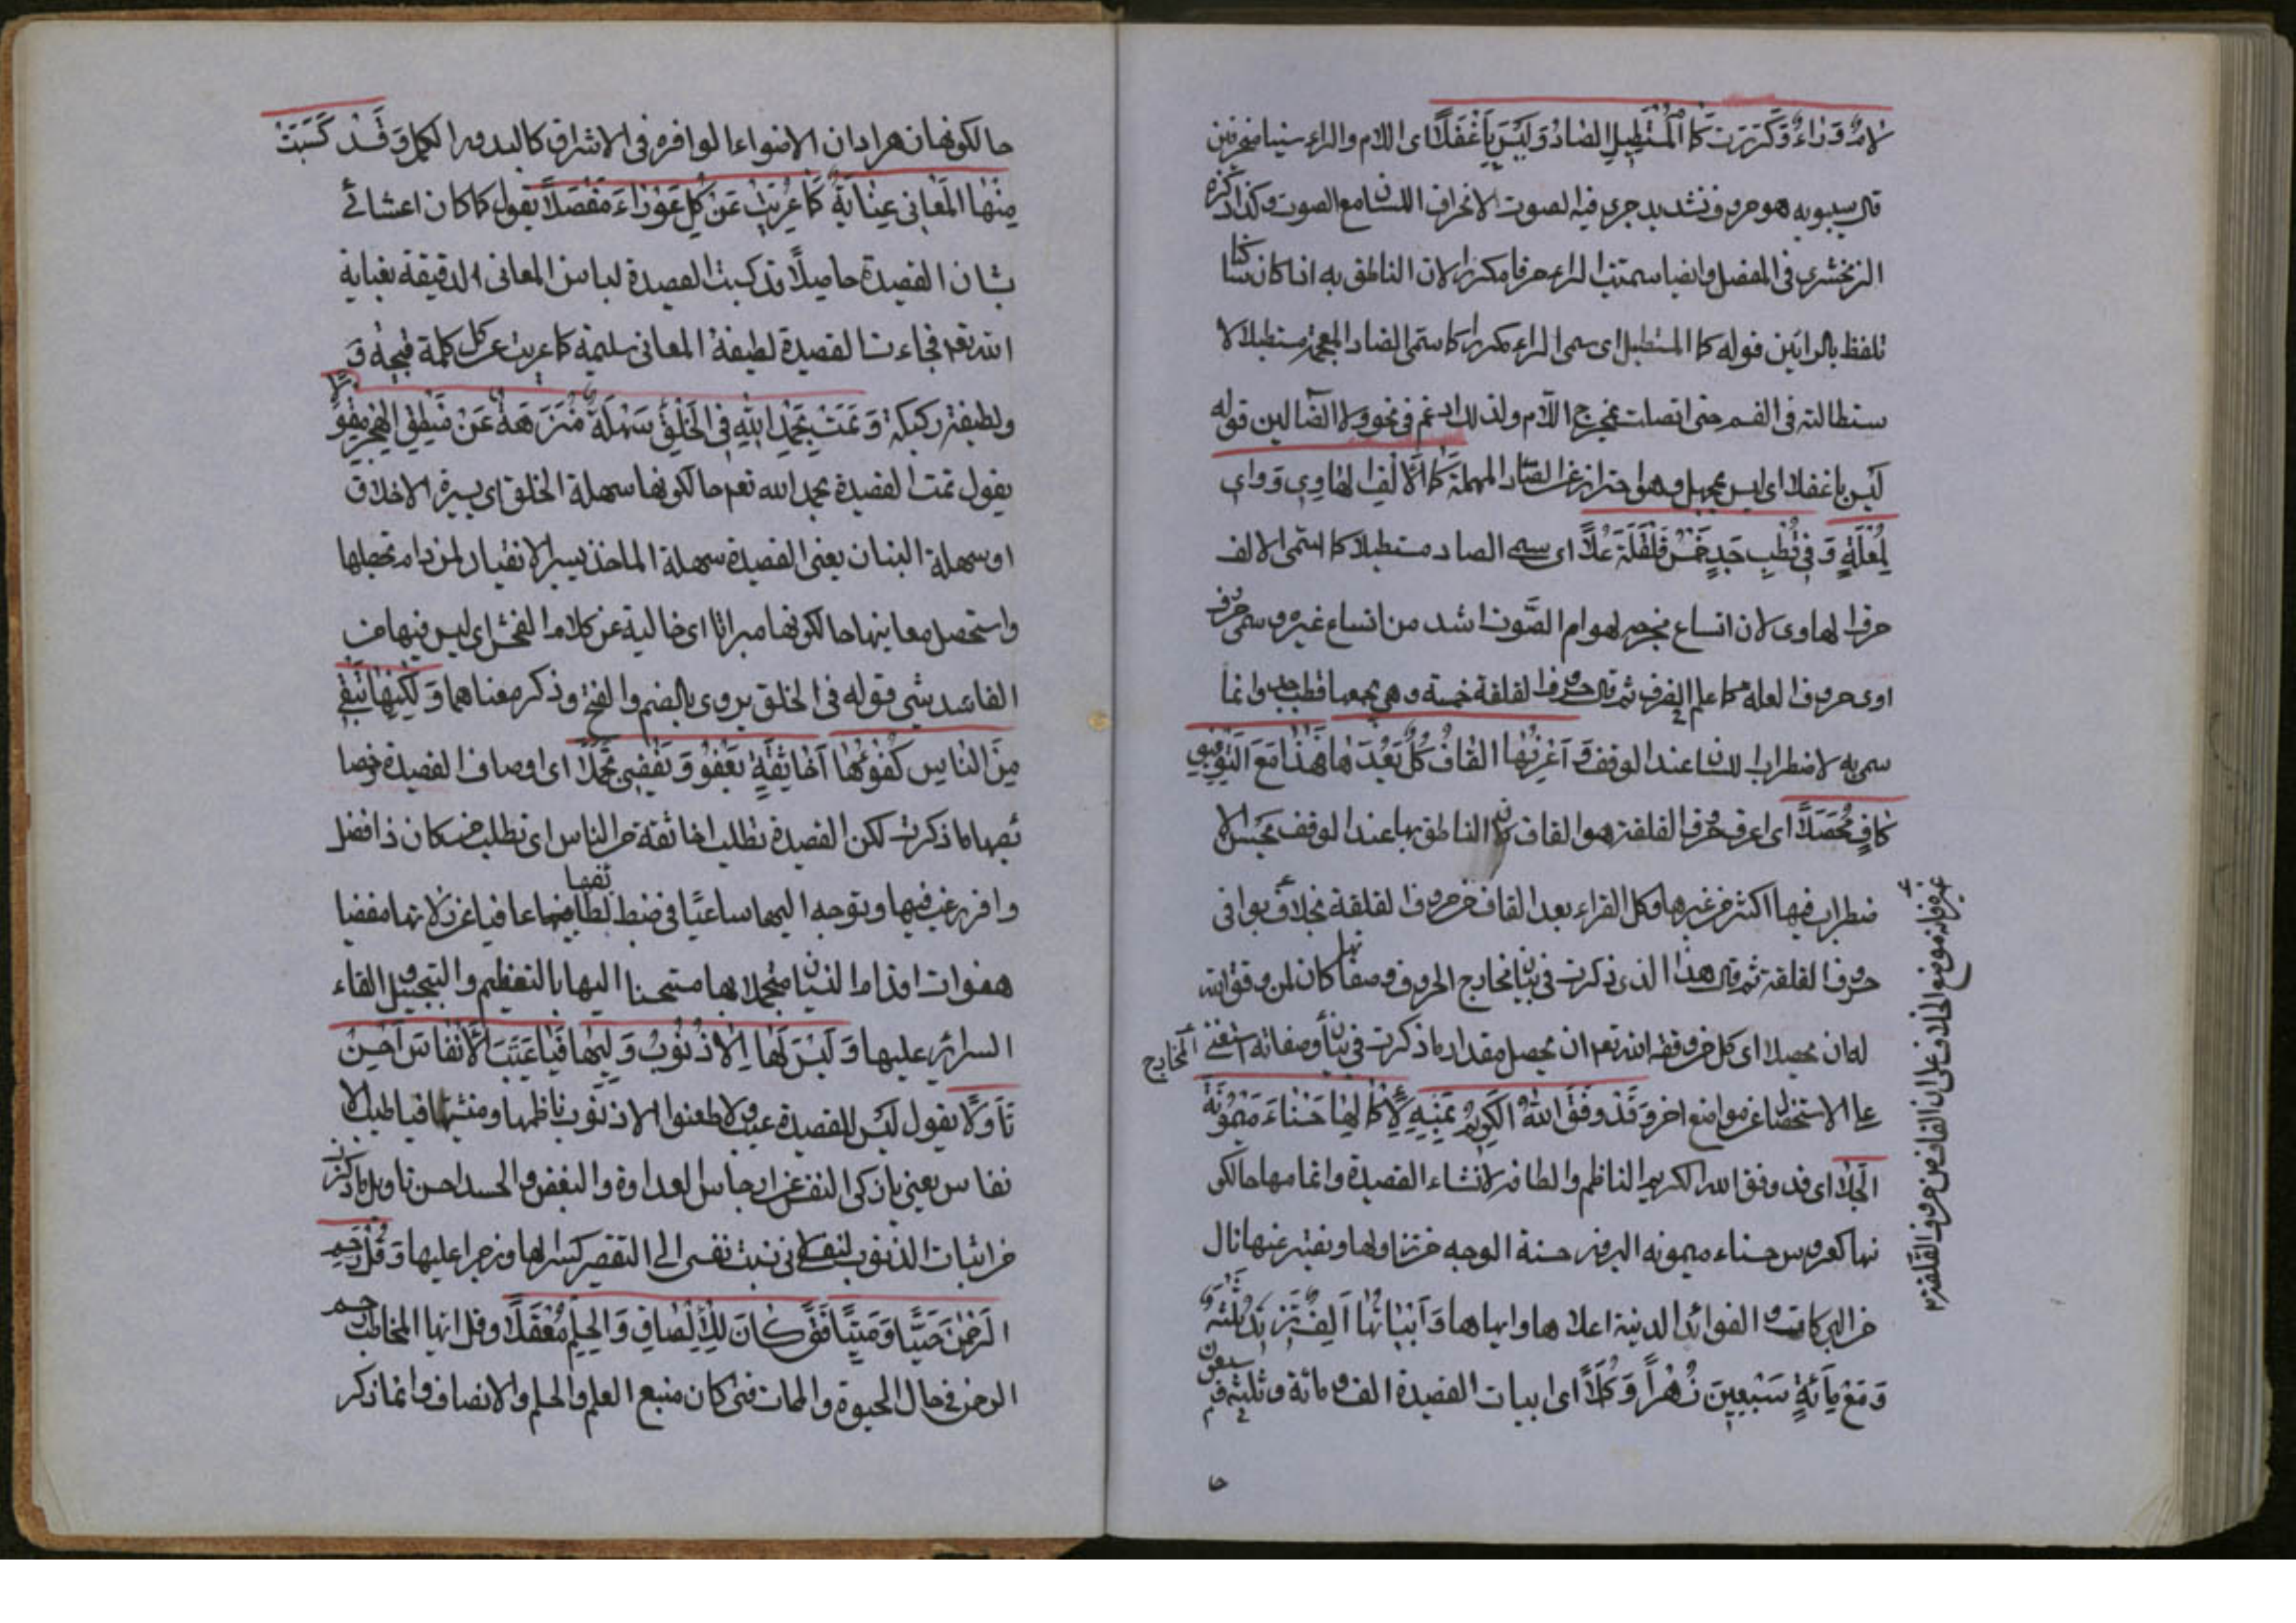 لامٌ وَرَاءٌ وَكُرِّرَتْ كَمَا الْمُسْتَطِيلِ الضَّادُ وَلَيْسَ بِأَغْفَلَا اى اللام والراء سيما منحرفين
قال سيبويه هو حرف شديد جرى فيه الصوت لانحراف اللسان مع الصوت وكذا ذكره
الزمخشرى فى المفصل وايضا سميت الراء حرفا مكررا لان الناطق به اذا كان
تلفظ بالرائين قوله كما المستطيل اى سمى الراء مكررا كما سمى الضاد المعجمة مستطيلا لا
ستطالته فى الفم حتى اتصلت بمخرج اللام ولذلك ادغم فى نحو ولا الضالين قوله
لَيْسَ بأغفلا اى ليس بمجهل وهو احتراز عن الصاد المهملة كَمَا الْأَلِفُ الْهَاوِى وَوَاى
لِعِلَّةٍ وَفِى قُطْبِ جَدٍّ خَمْسُ قَلْقَلَةٍ عُلًا اى سمى الضاد مستطيلا كما سمى الالف
حرف الهاوى لان اتساع مخرجه لهواء الصوت اشد من اتساع غيره وسمى حرف
اوى حروف العلة كما علم فى الصرف ثم قال حروف القلقة خمسة وهى يجمعها قطب جد وانما
سمى به لاضطراب اللسان عند الوقف وَأَعْرَفُهَا الْقَافُ كُلٌّ يَعُدُّهَا فَهٰذَا مَعَ التَّوْفِيقِ
كَافٍ مُحَصَّلَا اى اعرف حروف القلقة هو القاف لان الناطق بها عند الوقف يحس الا
ضطراب فيها اكثر من غيرها وكل القراء يعد القاف من حروف القلقة بخلاف بواقى
حروف القلقة ثم قال هذا الذى ذكرت فى بيان مخارج الحروف وصفاتها كان لمن وفق الله
له ان يحصلا اى كل من وفقه الله تعم ان يحصل مقدار ما ذكرت فى بيان وصفاته استغنى المخارج
عن الاستحصال عن مواضع اخر وَقَدْ وَفَّقَ اللّٰهُ الْكَرِيمُ بِمَنِّهِ لِإِكْمَالِهَا حَسْنَاءَ مَيْمُونَةَ
الْجِلَا اى قد وفق الله الكريم الناظم والطافه لانشاء القصيدة واتمامها حالكو
نها كعروس حسناء ميمونه البروز حسنة الوجه من تناولها ويفتبر عنها نال
من البركات والفوائد الدينية اعلاها وابهاها وَأَبْيَاتُهَا أَلْفٌ تَزِيدُ ثَلٰثَةً
وَمَعْ مِائَةٍ سَبْعِينَ زُهْرًا وَكُمَّلَا اى ابيات القصيدة الف ومائة وثلثة وسبعون
حا
غيره فانه موضع الخلاف على ان القاف من حروف القلقة
حالكونها ان هرا دان الاضواء الوافره فى الاشراق كالبدور الكمل وَقَدْ كُسِيَتْ
مِنْهَا الْمَعَانِى عِنَايَةً كَمَا عَرِيَتْ عَنْ كُلِّ عَوْرَاءَ مِفْصَلَا يقول كما كان اعتنائى
بشان القصيدة حاصلا قد كسيت القصيدة لباس المعانى الدقيقة بغاية
الله تعم فجاءت القصيدة لطيفة المعانى سليمة كما عريت عن كل كلمة قبيحة و
ولطيفة ركيكة وَتَمَّتْ بِحَمْدِ اللّٰهِ فِى الْخَلْقِ سَهْلَةً مُنَزَّهَةً عَنْ مَنْطِقِ الْهُجْرِ مِقْوَلَا
يقول تمت القصيدة بحمد الله تعم حالكونها سهلة الخلق اى يسيرة الاخلاق
او سهلة البنان يعنى القصيدة سهلة الماخذ يسير الانقياد لمن دام تحصيلها
واستحصل معانيها حالكونها مبراتا اى خالية عن كلام الفحش اى ليس فيها من
الفاسد شى قوله فى الخلق يروى بالضم والفتح وذكر معناهما وَلٰكِنَّهَا تَبْغِى
مِنَ النَّاسِ كُفُوءَهَا أَخَا ثِقَةٍ يَعْفُو وَيُغْضِى تَجَمُّلَا اى اوصاف القصيدة وخصا
ئصها ما ذكرت لكن القصيدة تطلب اخا ثقة من الناس اى تطلب من كان ذا فضل
وافر يرغب فيها ويتوجه اليها ساعيا فى ضبط لطائفها عافيا عن زلاتها مغضيا
هفوات اقدام اللسان متجملا بها مستحسنا اليها بالتعظيم والتبجيل القاء
السرائر عليها وَلَيْسَ لَهَا إِلَّا ذُنُوبُ وَلِيِّهَا فَيَا طَيِّبَ الْأَنْفَاسِ أَحْسِنْ
تَأَوُّلَا يقول ليس للقصيدة عيب ولا طعنوا الا ذنوب ناظمها ومنشئها فيا طيب الا
نفاس يعنى يا زكى النفس عن ارجاس العداوة والبغض والحسد احسن تاويل ما ذكرت
من اثبات الذنوب لنفسى لانى نسبت نفسى الى التقصير كسرا لها وزجرا عليها وَقُلْ رَحِمَ
الرَّحْمٰنُ حَيًّا وَمَيِّتًا فَتًى كَانَ لِلْإِنْصَافِ وَالْحِلْمِ مَعْقِلَا وقل ايها المخاطب رحم
الرحمن فى حال الحيوة والممات فتى كان منبع العلم والحلم والانصاف وانما ذكر